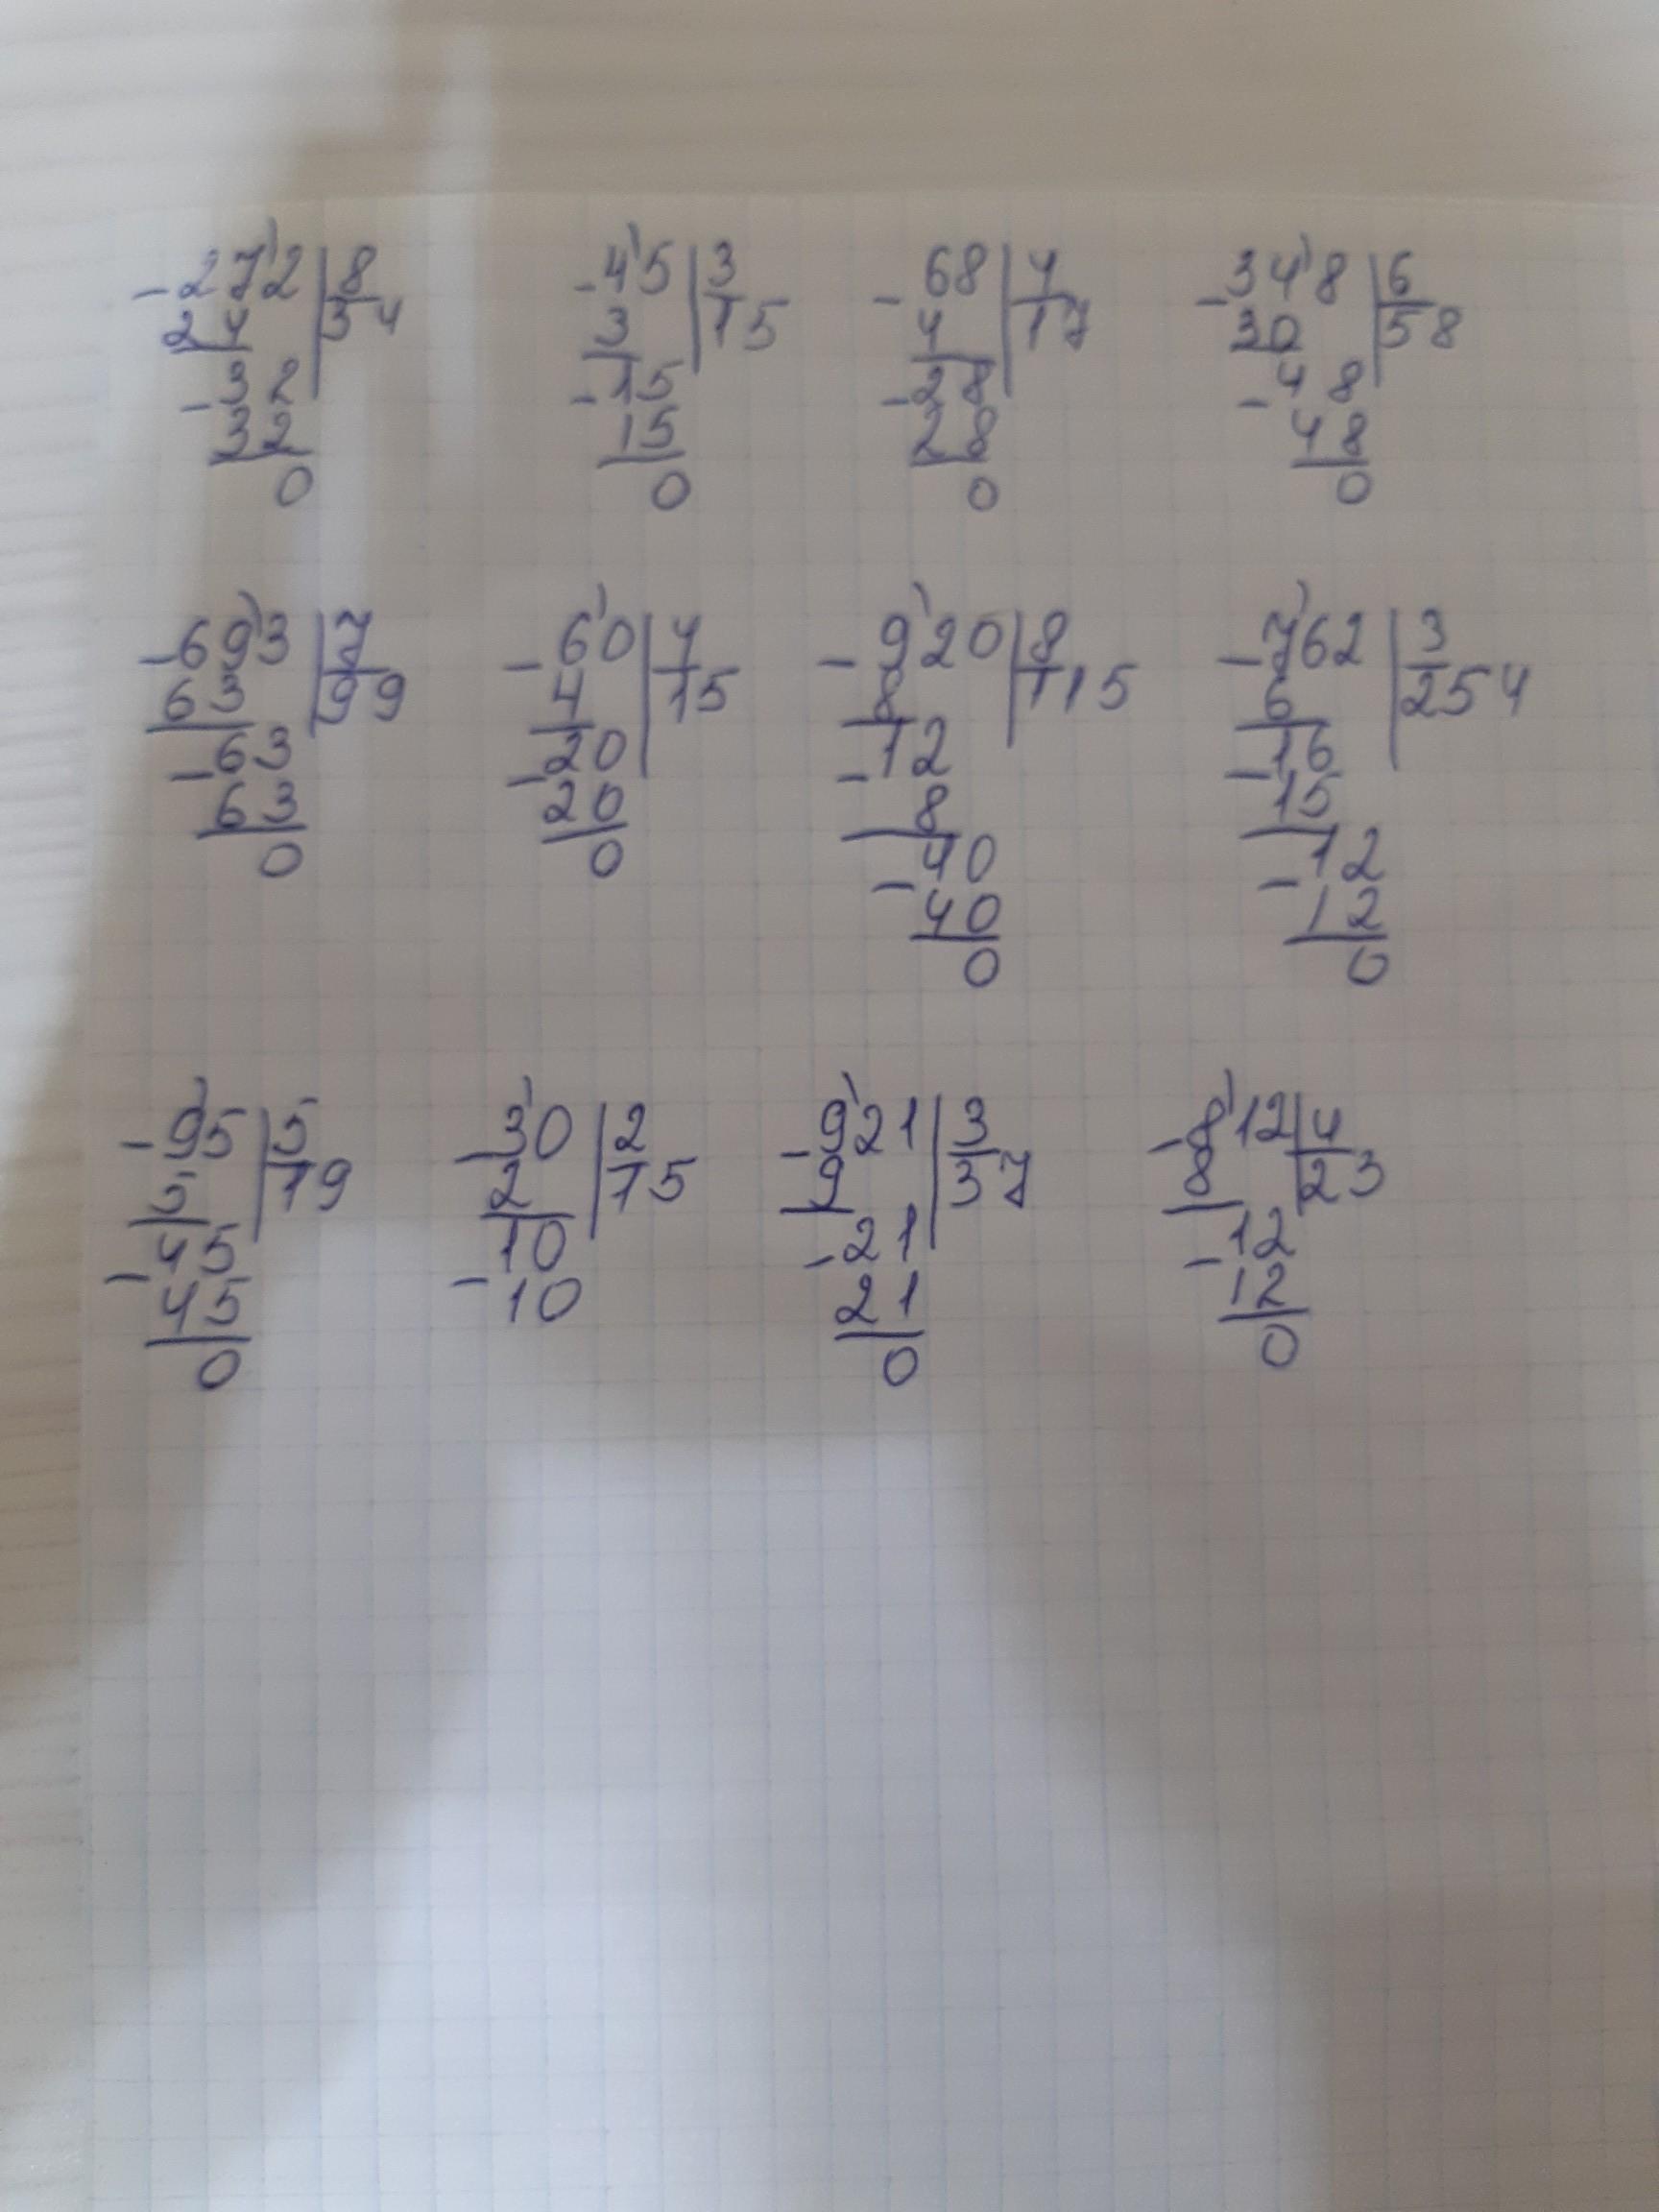 -272 | 8   -45 | 3   -68 | 4   -348 | 6
24 | 34   3 | 15   4 | 17   30 | 58
-32   -15   -28   -48
32   15   28   48
0   0   0   0
-693 | 7   -60 | 4   -920 | 8   -762 | 3
63 | 99   4 | 15   8 | 115   6 | 254
-63   -20   -12   -16
63   20   8   15
0   0   -40   -12
40   12
0   0
-95 | 5   -30 | 2   -921 | 3   -812 | 4
5 | 19   2 | 15   9 | 37   8 | 23
-45   10   -21   -12
45   -10   21   12
0   0   0